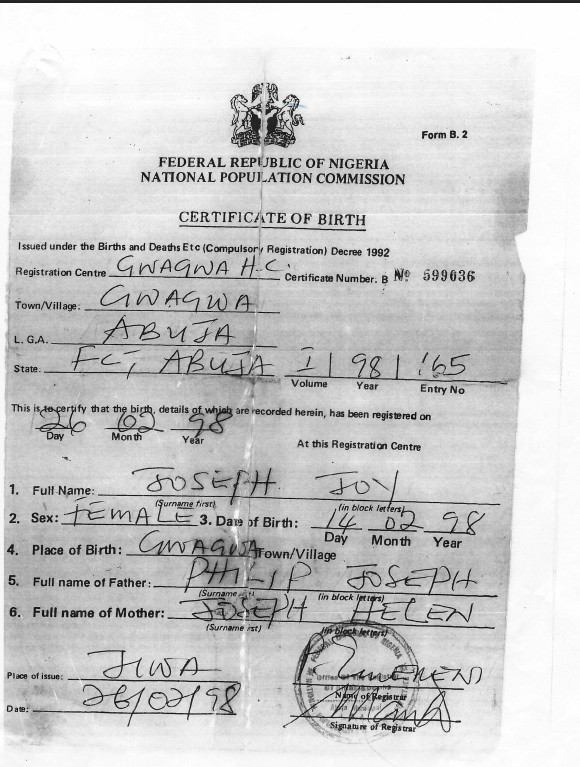 Form B. 2
FEDERAL REPUBLIC OF NIGERIA
NATIONAL POPULATION COMMISSION
CERTIFICATE OF BIRTH
Issued under the Births and Deaths Etc (Compulsory Registration) Decree 1992
Registration Centre GWAGWA H.C. Certificate Number. B Nº 599636
Town/Village: GWAGWA
L.G.A. ABUJA
State: FCT, ABUJA 1 98 165
Volume Year Entry No
This is to certify that the birth, details of which are recorded herein, has been registered on
26 02 98
Day Month Year
At this Registration Centre
1. Full Name: JOSEPH JOY
(Surname first) (in block letters)
2. Sex: FEMALE 3. Date of Birth: 14 02 98
Day Month Year
4. Place of Birth: GWAGWA Town/Village
5. Full name of Father: PHILIP JOSEPH
(Surname (in block letters)
6. Full name of Mother: JOSEPH HELEN
(Surname (in block letters)
Place of issue: JIWA
Name of Registrar
Date: 26/02/98
Signature of Registrar